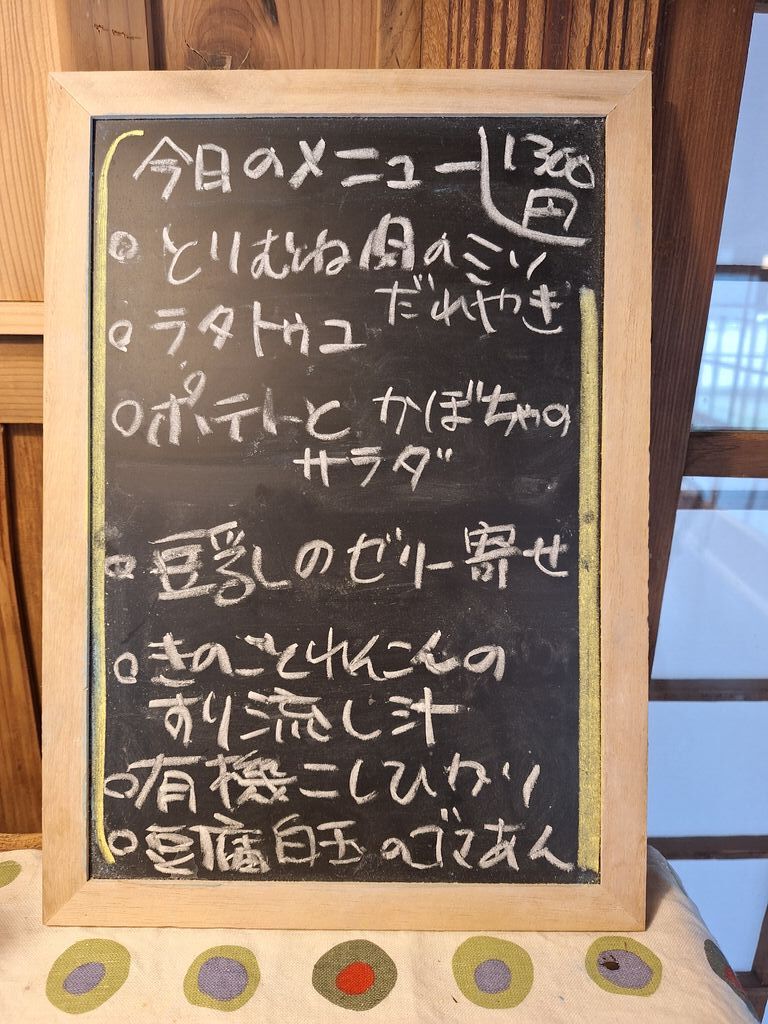 今日のメニュー 1300円
とりむね肉のミソ
だれやき
ラタトゥユ
ポテトと かぼちゃの
サラダ
豆乳しのゼリー寄せ
きのことれんこんの
すり流し汁
有機こしひかり
豆腐白玉のゴマあん